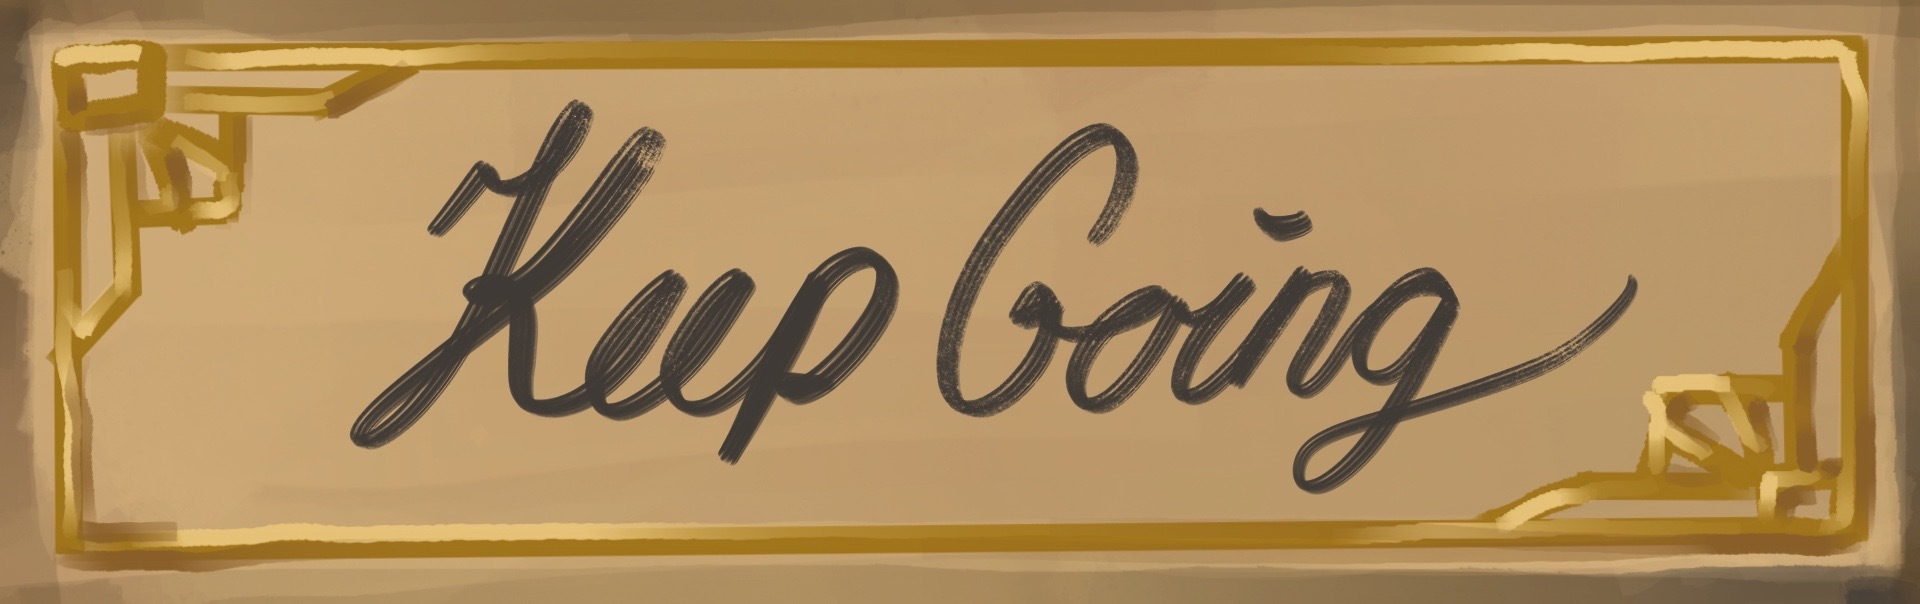 Keep Going